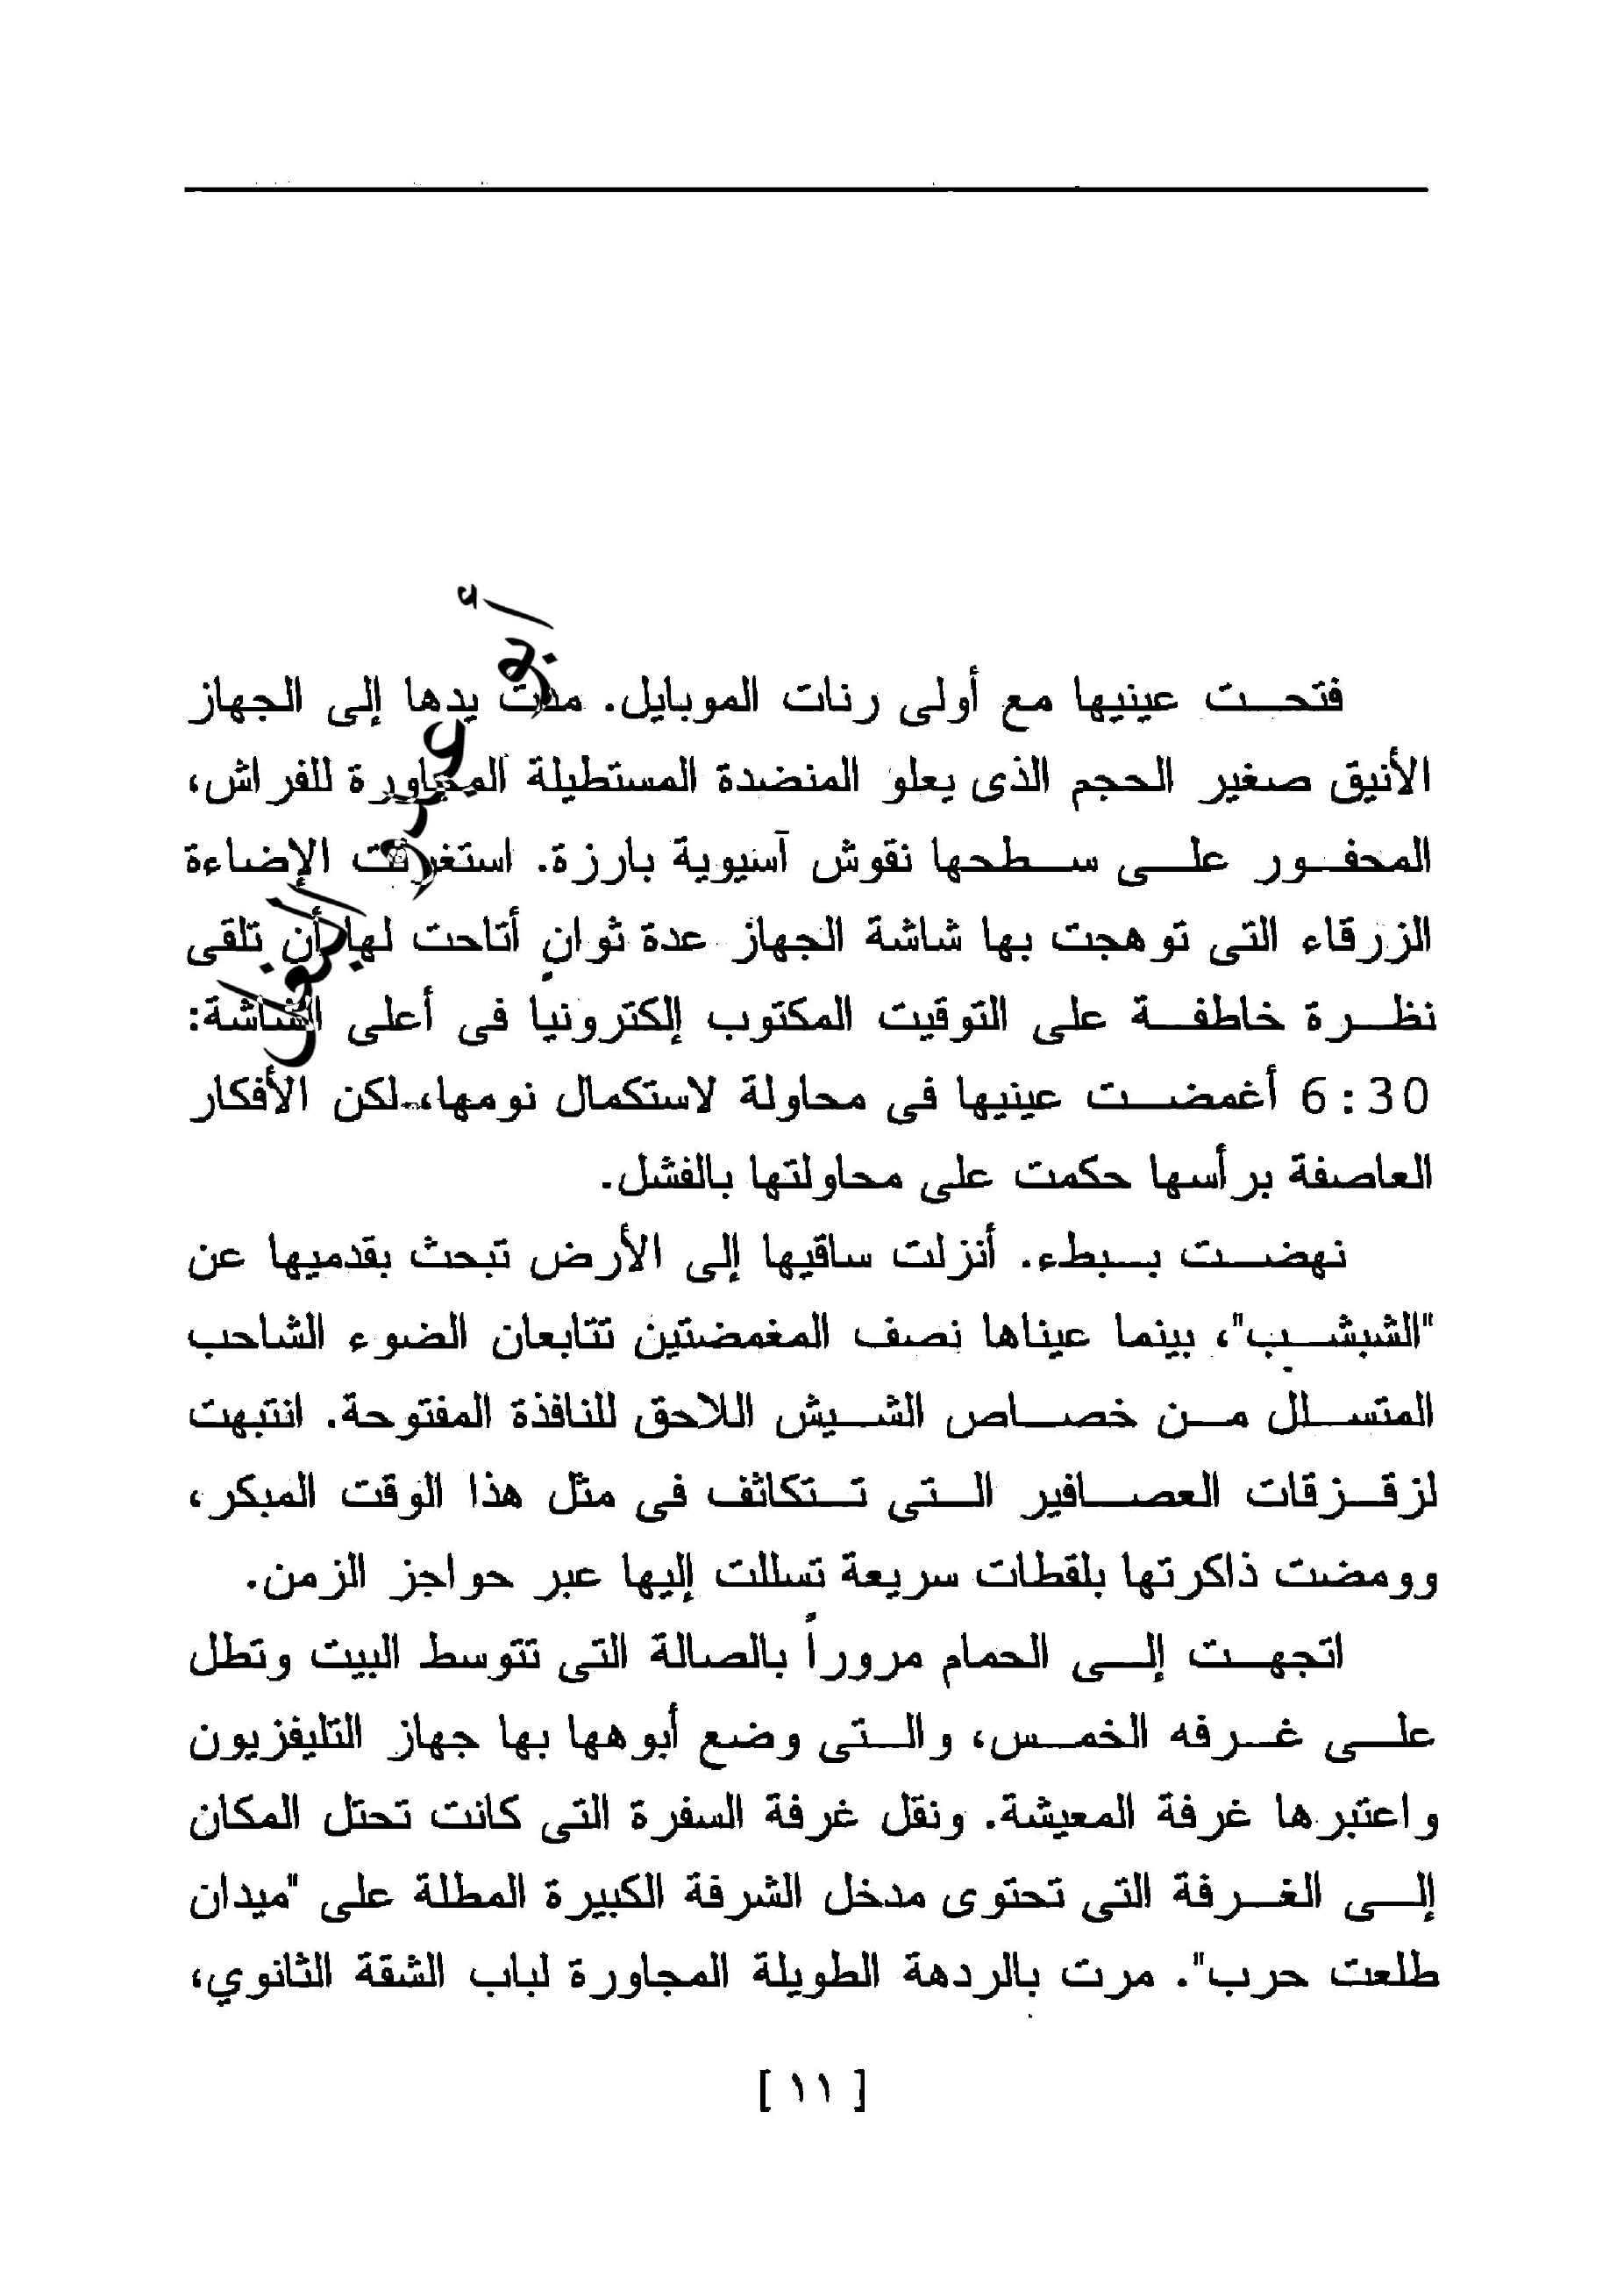 فتحت عينيها مع أولى رنات الموبايل. مدت يدها إلى الجهاز
الأنيق صغير الحجم الذى يعلو المنضدة المستطيلة المجاورة للفراش،
المحفور على سطحها نقوش آسيوية بارزة. استغرقت الإضاءة
الزرقاء التى توهجت بها شاشة الجهاز عدة ثوانٍ أتاحت لها أن تلقى
نظرة خاطفة على التوقيت المكتوب إلكترونيا فى أعلى الشاشة:
6:30 أغمضت عينيها فى محاولة لاستكمال نومها، لكن الأفكار
العاصفة برأسها حكمت على محاولتها بالفشل.
نهضت ببطء. أنزلت ساقيها إلى الأرض تبحث بقدميها عن
"الشبشب"، بينما عيناها نصف المغمضتين تتابعان الضوء الشاحب
المتسلل من خصاص الشيش اللاحق للنافذة المفتوحة. انتبهت
لزقزقات العصافير التى تتكاثف فى مثل هذا الوقت المبكر،
وومضت ذاكرتها بلقطات سريعة تسللت إليها عبر حواجز الزمن.
اتجهت إلى الحمام مروراً بالصالة التى تتوسط البيت وتطل
على غرفه الخمس، والتى وضع أبوها بها جهاز التليفزيون
واعتبرها غرفة المعيشة. ونقل غرفة السفرة التى كانت تحتل المكان
إلى الغرفة التى تحتوى مدخل الشرفة الكبيرة المطلة على "ميدان
طلعت حرب". مرت بالردهة الطويلة المجاورة لباب الشقة الثانوي،
[ ١١ ]